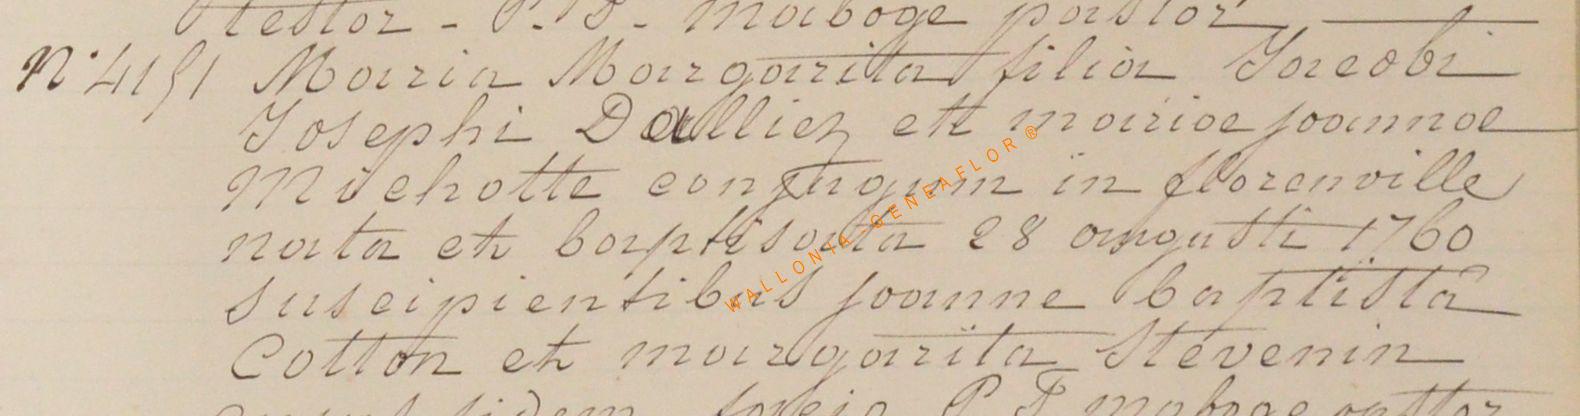 testor - P. F. maboge pastor
N° 4151 Maria Margarita filia Jacobi
Josephi Dalliez et mariae joannae
Michotte conjugum in florenville
nata et baptisata 28 augusti 1760
suscipientibus joanne baptista
Cotton et margarita Stevenin
fidem P F maboge pastor
WALLONIA-GENEAFLOR ®